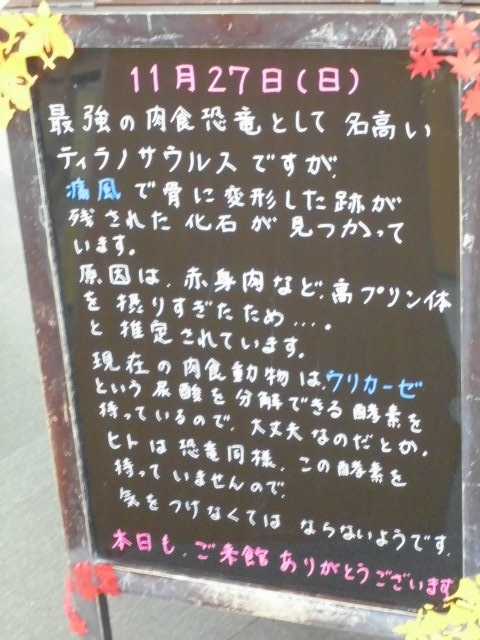 11月27日(日)
最強の肉食恐竜として名高い
ティラノサウルスですが、
痛風で骨に変形した跡が
残された化石が見つかって
います。
原因は、赤身肉など、高プリン体
を摂りすぎたため…。
と推定されています。
現在の肉食動物は、ウリカーゼ
という尿酸を分解できる酵素を
持っているので、大丈夫なのだとか。
ヒトは恐竜同様、この酵素を
持っていませんので、
気をつけなくてはならないようです。
本日も、ご来館ありがとうございます